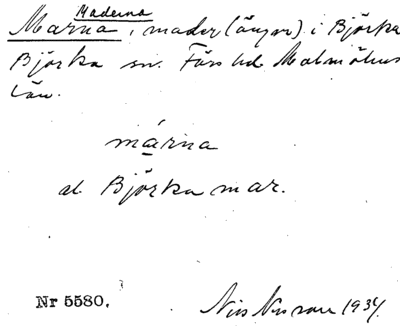 Maderna
Marna, mader (ängar) i Björka
Björka sn. Färs hd Malmöhus
län.
márna
al. Björka mar.
Nr 5580.
Nils Nilsson 1934.